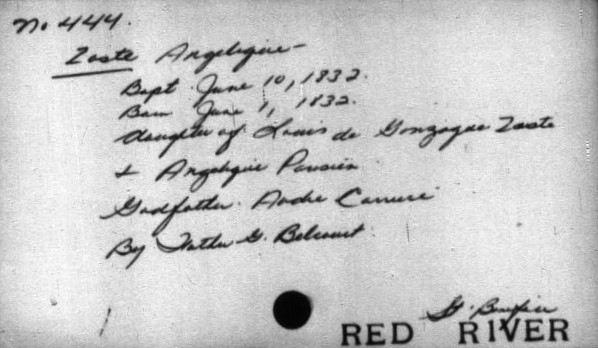 No 444.
Zaste Angelique -
Bapt June 10, 1832.
Born June 1, 1832.
daughter of Louis de Gonzague Zaste
& Angelique Parisien
Godfather. Andre Carriere
By Father G. Belcourt
St. Boniface
RED RIVER